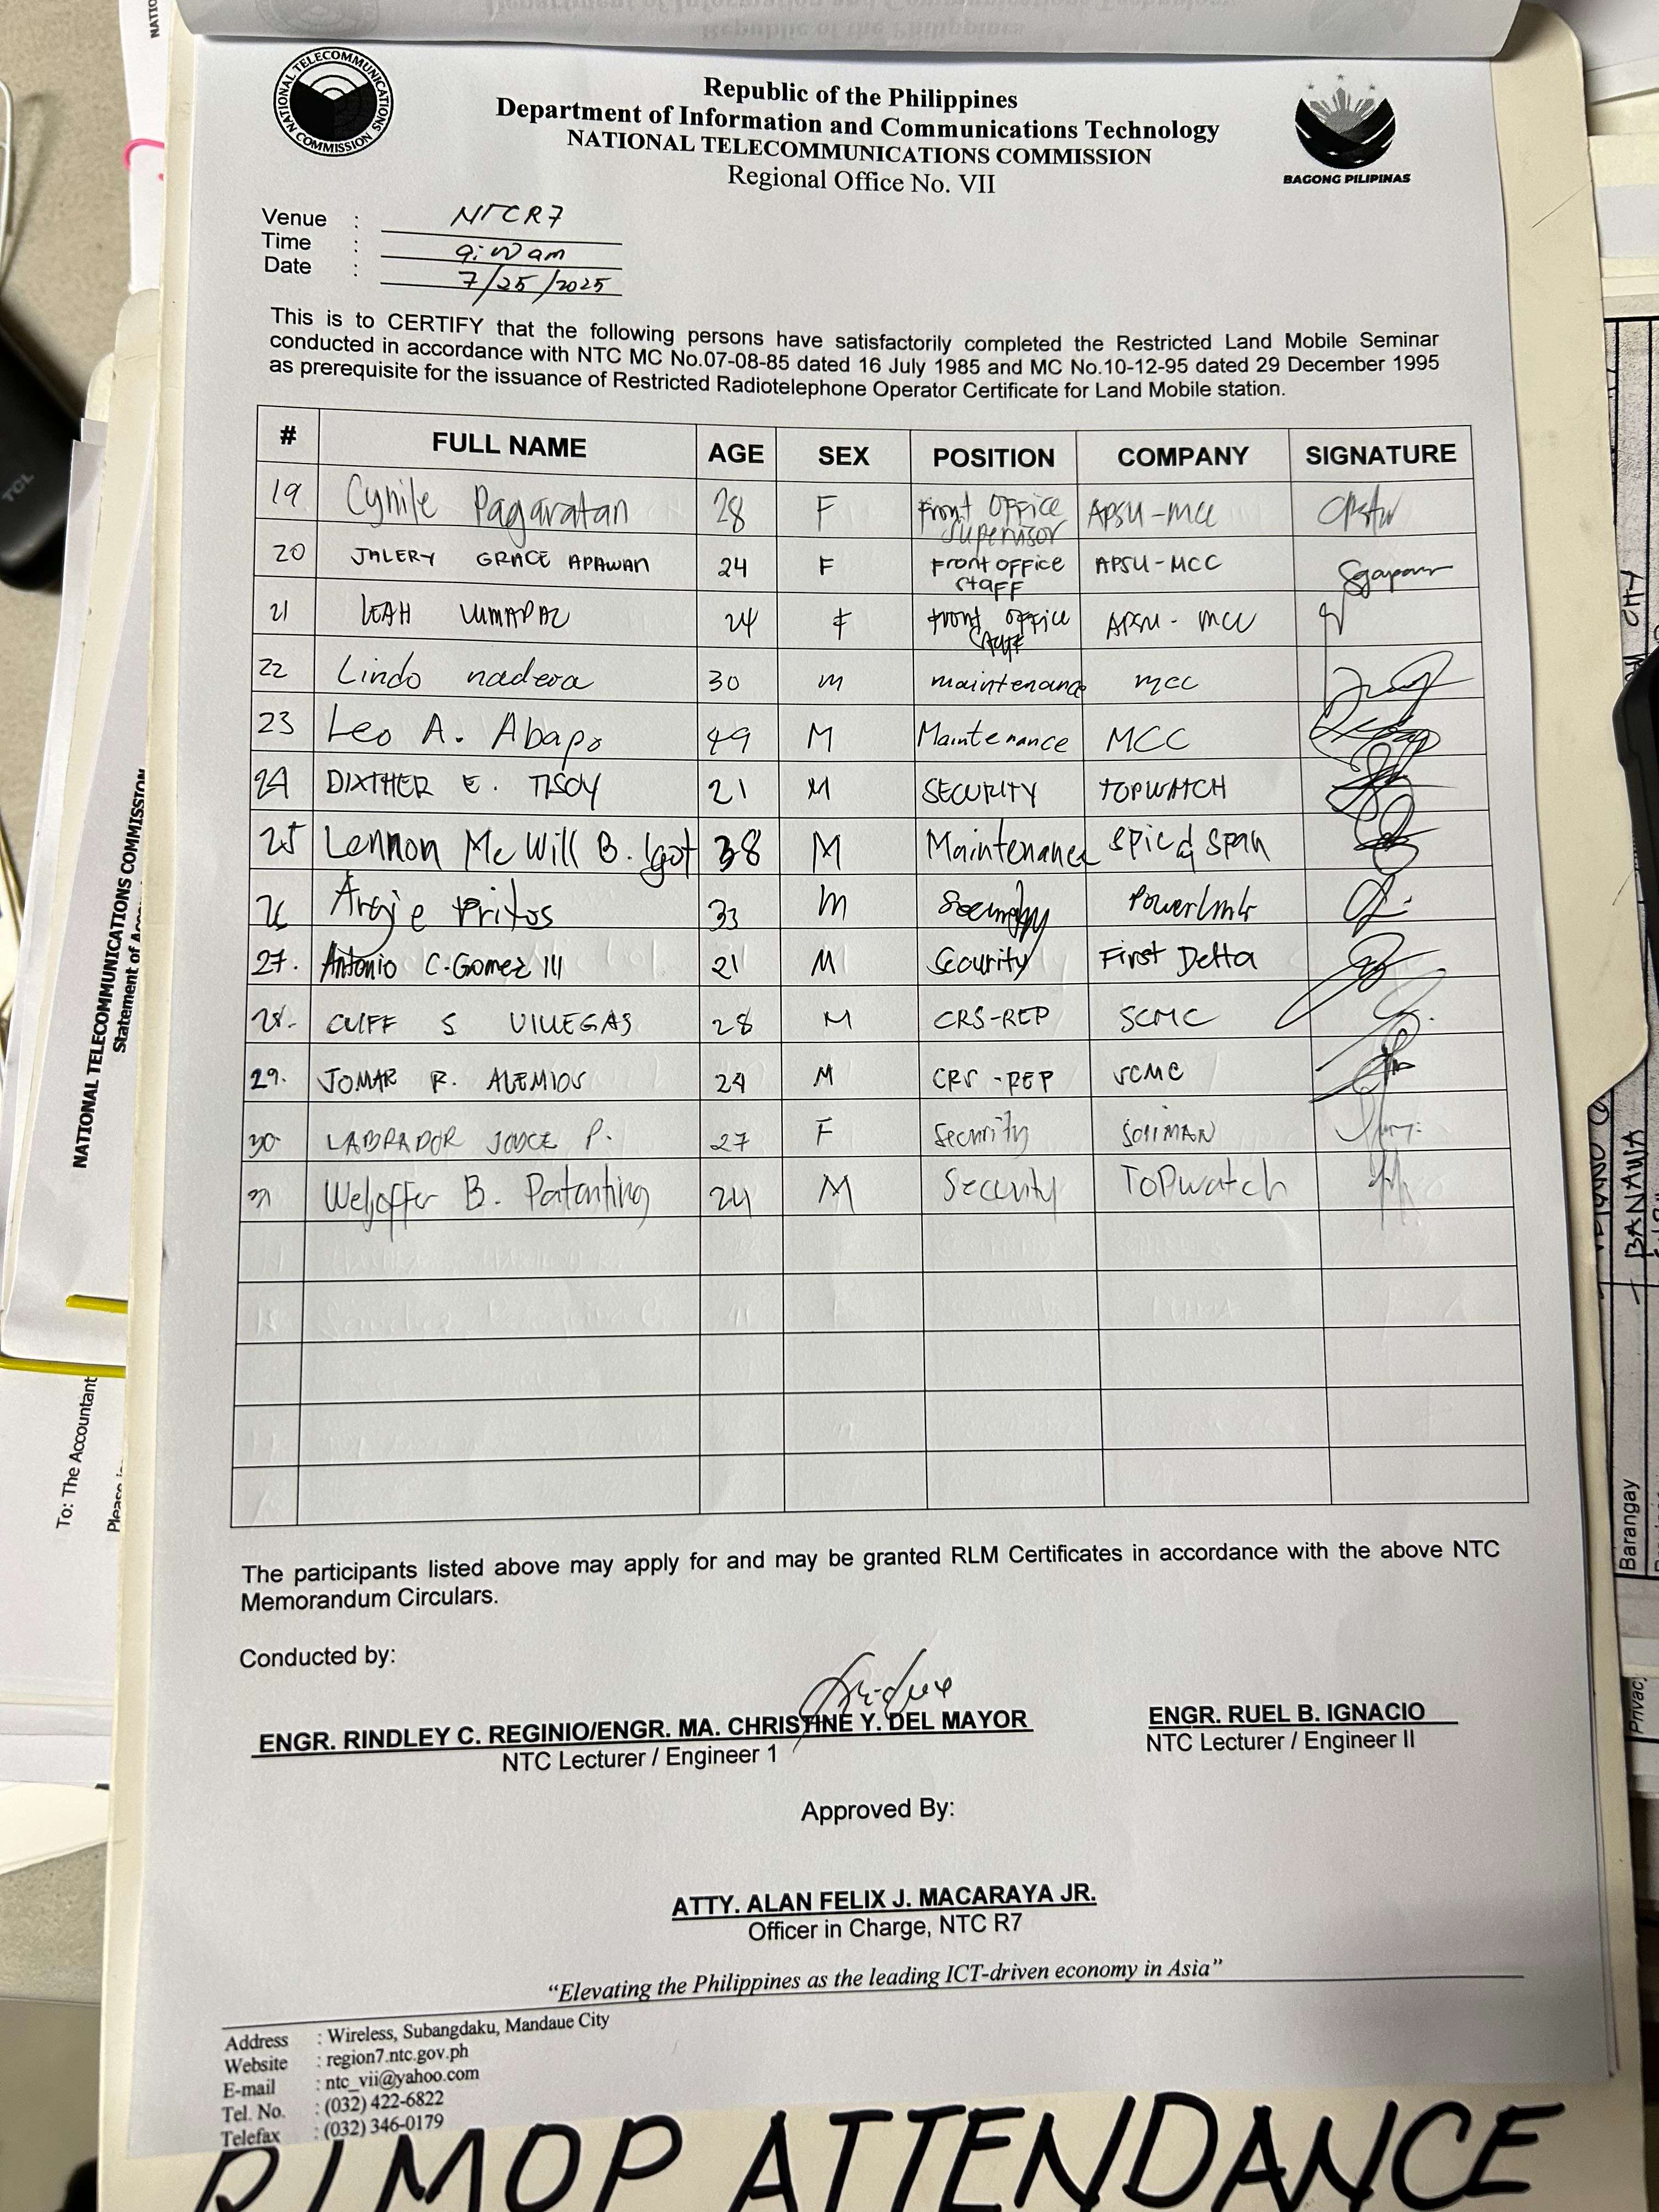 Republic of the Philippines
Department of Information and Communications Technology
NATIONAL TELECOMMUNICATIONS COMMISSION
Regional Office No. VII
NATIONAL TELECOMMUNICATIONS COMMISSION
BAGONG PILIPINAS
Venue : NTC R7
Time : 9:00 am
Date : 7/25/2025
This is to CERTIFY that the following persons have satisfactorily completed the Restricted Land Mobile Seminar
conducted in accordance with NTC MC No.07-08-85 dated 16 July 1985 and MC No.10-12-95 dated 29 December 1995
as prerequisite for the issuance of Restricted Radiotelephone Operator Certificate for Land Mobile station.
# FULL NAME AGE SEX POSITION COMPANY SIGNATURE
19 Cynile Pagaratan 28 F Front Office Supervisor APSU-MCC
20 JALERY GRACE APAWAN 24 F Front office Staff APSU-MCC
21 LEAH LUMAPAZ 24 F Front office Staff APSU-MCC
22 Lindo nadera 30 M maintenance mcc
23 Leo A. Abapo 49 M Maintenance MCC
24 DIXTHER E. TISOY 21 M SECURITY TOPWATCH
25 Lennon Mc Will B. Igot 38 M Maintenance Spic & Span
26 Argie Pritos 33 m Security
27. Antonio C. Gomez III 21 M Security First Delta
28. CLIFF S VILLEGAS 28 M CRS-REP SCMC
29. JOMAR R. ALEMIOS 24 M CRS-REP SCMC
30 LABRADOR JOYCE P. 27 F Security SOLIMAN
31 Weljoffer B. Patenting 24 M Security TOPwatch
The participants listed above may apply for and may be granted RLM Certificates in accordance with the above NTC
Memorandum Circulars.
Conducted by:
ENGR. RINDLEY C. REGINIO/ENGR. MA. CHRISTINE Y. DEL MAYOR
NTC Lecturer / Engineer 1
ENGR. RUEL B. IGNACIO
NTC Lecturer / Engineer II
Approved By:
ATTY. ALAN FELIX J. MACARAYA JR.
Officer in Charge, NTC R7
“Elevating the Philippines as the leading ICT-driven economy in Asia”
Address : Wireless, Subangdaku, Mandaue City
Website : region7.ntc.gov.ph
E-mail : ntc_vii@yahoo.com
Tel. No. : (032) 422-6822
Telefax : (032) 346-0179
RLMOP ATTENDANCE
NATIONAL TELECOMMUNICATIONS COMMISSION
Statement of
To: The Accountant
Please
TCL
BANAWA
Barangay
Privac